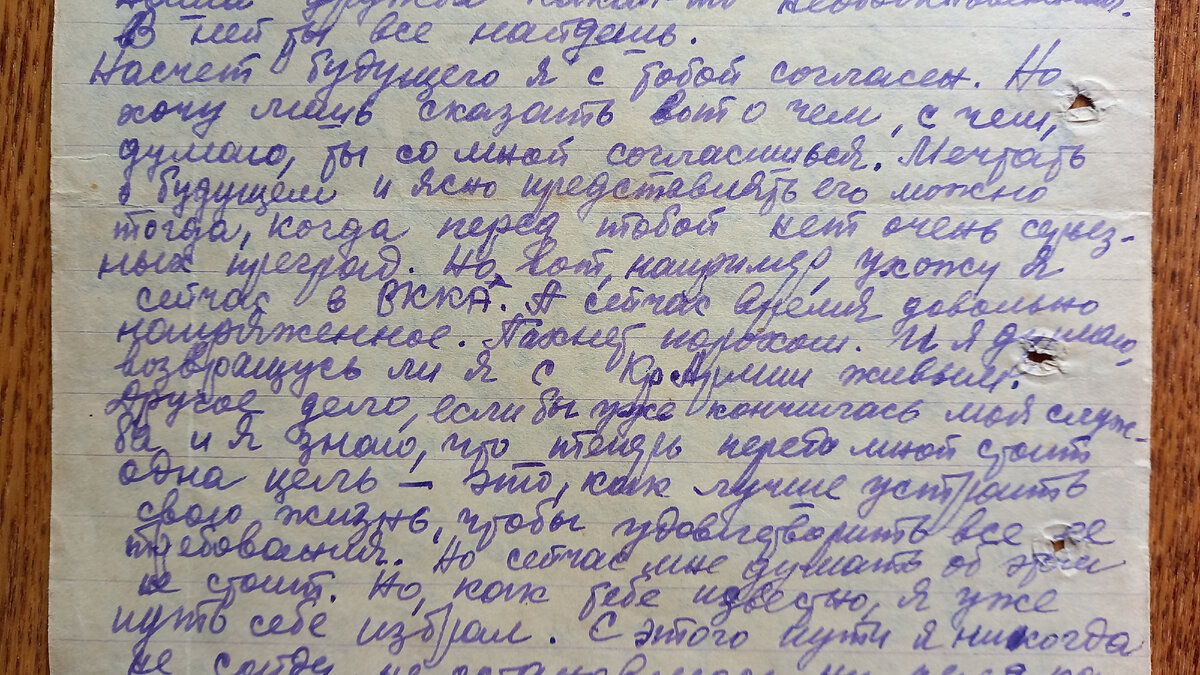 наша дружба какая-то необыкновенная.
В ней ты все найдешь.
Насчет будущего я с тобой согласен. Но
хочу лишь сказать вот о чем, с чем,
думаю, ты со мной согласишься. Мечтать
о будущем и ясно представлять его можно
тогда, когда перед тобой нет очень серьез-
ных преград. Но, вот, например, ухожу я
сейчас в РККА. А сейчас время довольно
напряженное. Пахнет порохом. И я думаю,
возвращусь ли я с Кр Армии живым.
Другое дело, если бы уже кончилась моя служ-
ба и я знаю, что теперь передо мной стоит
одна цель — это, как лучше устроить
свою жизнь, чтобы удовлетворить все ее
требования. Но сейчас мне думать об этом
не стоит. Но, как тебе известно, я уже
путь себе избрал. С этого пути я никогда
не сойду